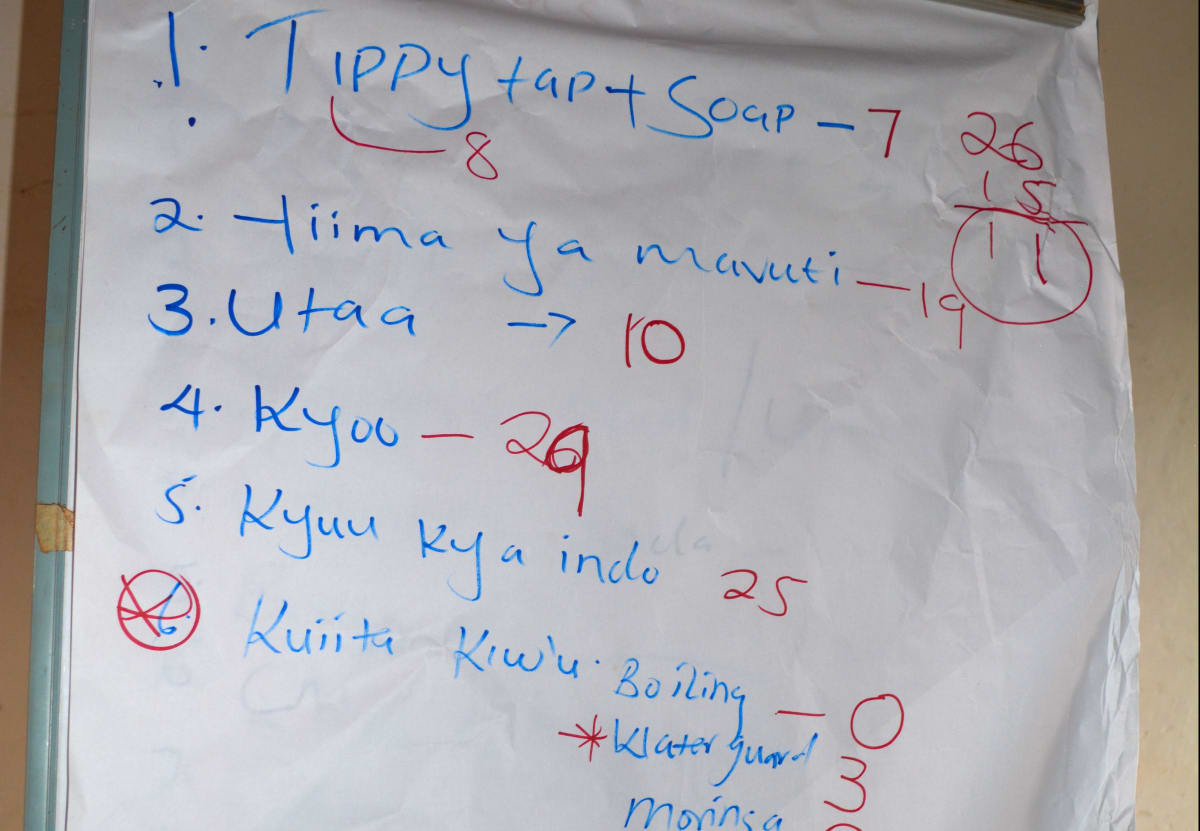 1. Tippy tap + Soap - 7
8
26
15
11
2. Hiima ya mavuti - 19
3. Utaa → 10
4. Kyoo - 29
5. Kyuu kya indo 25
6. Kuiita Kiw'u. Boiling - 0
* Klater guard 3
moringa